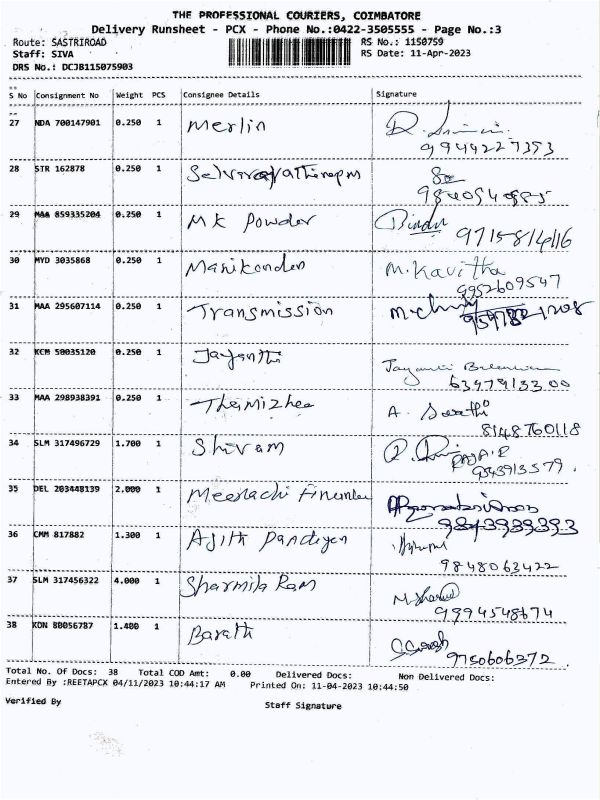 THE PROFESSIONAL COURIERS, COIMBATORE
Delivery Runsheet - PCX - Phone No.:0422-3505555 - Page No.:3
Route: SASTRIROAD RS No.: 1150759
Staff: SIVA RS Date: 11-Apr-2023
DRS No.: DCJB115075903
S No Consignment No Weight PCS Consignee Details Signature
27 NDA 700147901 0.250 1 Merlin
9944227353
28 STR 162878 0.250 1
29 MAA 859335204 0.250 1 MK Powder Bindu
30 MYD 3035868 0.250 1 Manikanden M. Kavitha
9952609547
31 MAA 295607114 0.250 1 Transmission
32 KCM 50035120 0.250 1 Jayanthi
6397913300
33 MAA 298938391 0.250 1 Themizhee A. Sarathi
8148760118
34 SLM 317496729 1.700 1 Shivam
9843913579.
35 DEL 203448139 2.000 1 Meenachi
9843939393
36 CMM 817882 1.300 1 Ajith Pandiyen
9848063422
37 SLM 317456322 4.000 1 Sharmila Ram
9994548674
38 KON 80056787 1.400 1 Barath
9750606372.
Total No. Of Docs: 38 Total COD Amt: 0.00 Delivered Docs: Non Delivered Docs:
Entered By :REETAPCX 04/11/2023 10:44:17 AM Printed On: 11-04-2023 10:44:50
Verified By Staff Signature